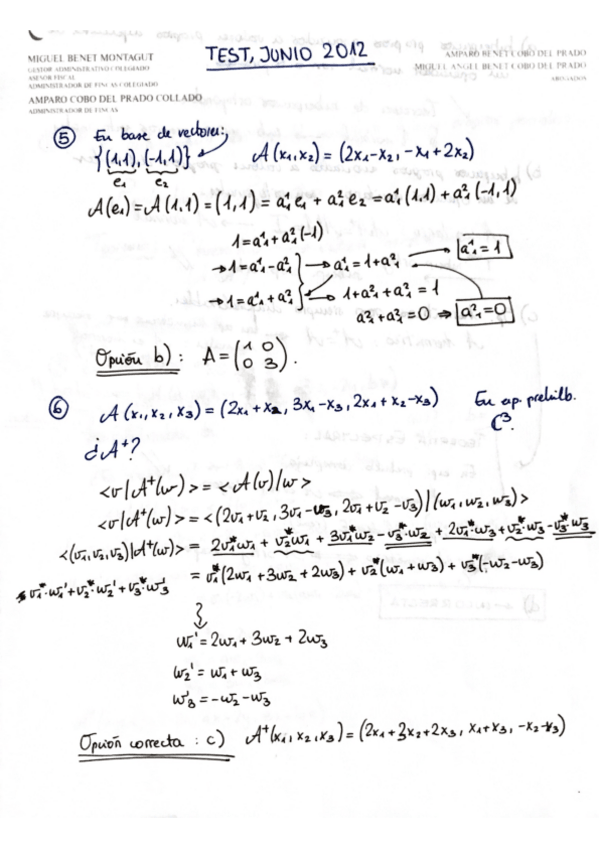 TEST, JUNIO 2012
MIGUEL BENET MONTAGUT
GESTOR ADMINISTRATIVO COLEGIADO
ASESOR FISCAL
ADMINISTRADOR DE FINCAS COLEGIADO
AMPARO COBO DEL PRADO COLLADO
ADMINISTRADOR DE FINCAS
AMPARO BENET COBO DEL PRADO
MIGUEL ANGEL BENET COBO DEL PRADO
ABOGADOS
⑤ En base de vectores:
{(1,1), (-1,1)} A(x₁,x₂) = (2x₁-x₂, -x₁+2x₂)
e₁ e₂
A(e₁) = A(1,1) = (1,1) = a¹₁ e₁ + a²₁ e₂ = a¹₁(1,1) + a²₁(-1,1)
1 = a¹₁ + a²₁(-1)
→ 1 = a¹₁ - a²₁ → a¹₁ = 1 + a²₁ → a¹₁ = 1
→ 1 = a¹₁ + a²₁ → 1 + a²₁ + a²₁ = 1
a²₁ + a²₁ = 0 ⇒ a²₁ = 0
Opción b): A = (1 0
0 3).
⑥ A(x₁,x₂,x₃) = (2x₁+x₂, 3x₁-x₃, 2x₁+x₂-x₃) En ep. prehilb.
C³.
¿A⁺?
<v|A⁺(w)> = <A(v)|w>
<v|A⁺(w)> = <(2v₁+v₂, 3v₁-v₃, 2v₁+v₂-v₃)|(w₁,w₂,w₃)>
<(v₁,v₂,v₃)|A⁺(w)> = 2v₁*w₁ + v₂*w₁ + 3v₁*w₂ - v₃*w₂ + 2v₁*w₃ + v₂*w₃ - v₃*w₃
v₁*·w₁' + v₂*·w₂' + v₃*·w₃' = v₁*(2w₁+3w₂+2w₃) + v₂*(w₁+w₃) + v₃*(-w₂-w₃)
w₁' = 2w₁ + 3w₂ + 2w₃
w₂' = w₁ + w₃
w₃' = -w₂ - w₃
Opción correcta: c) A⁺(x₁,x₂,x₃) = (2x₁+3x₂+2x₃, x₁+x₃, -x₂-x₃)